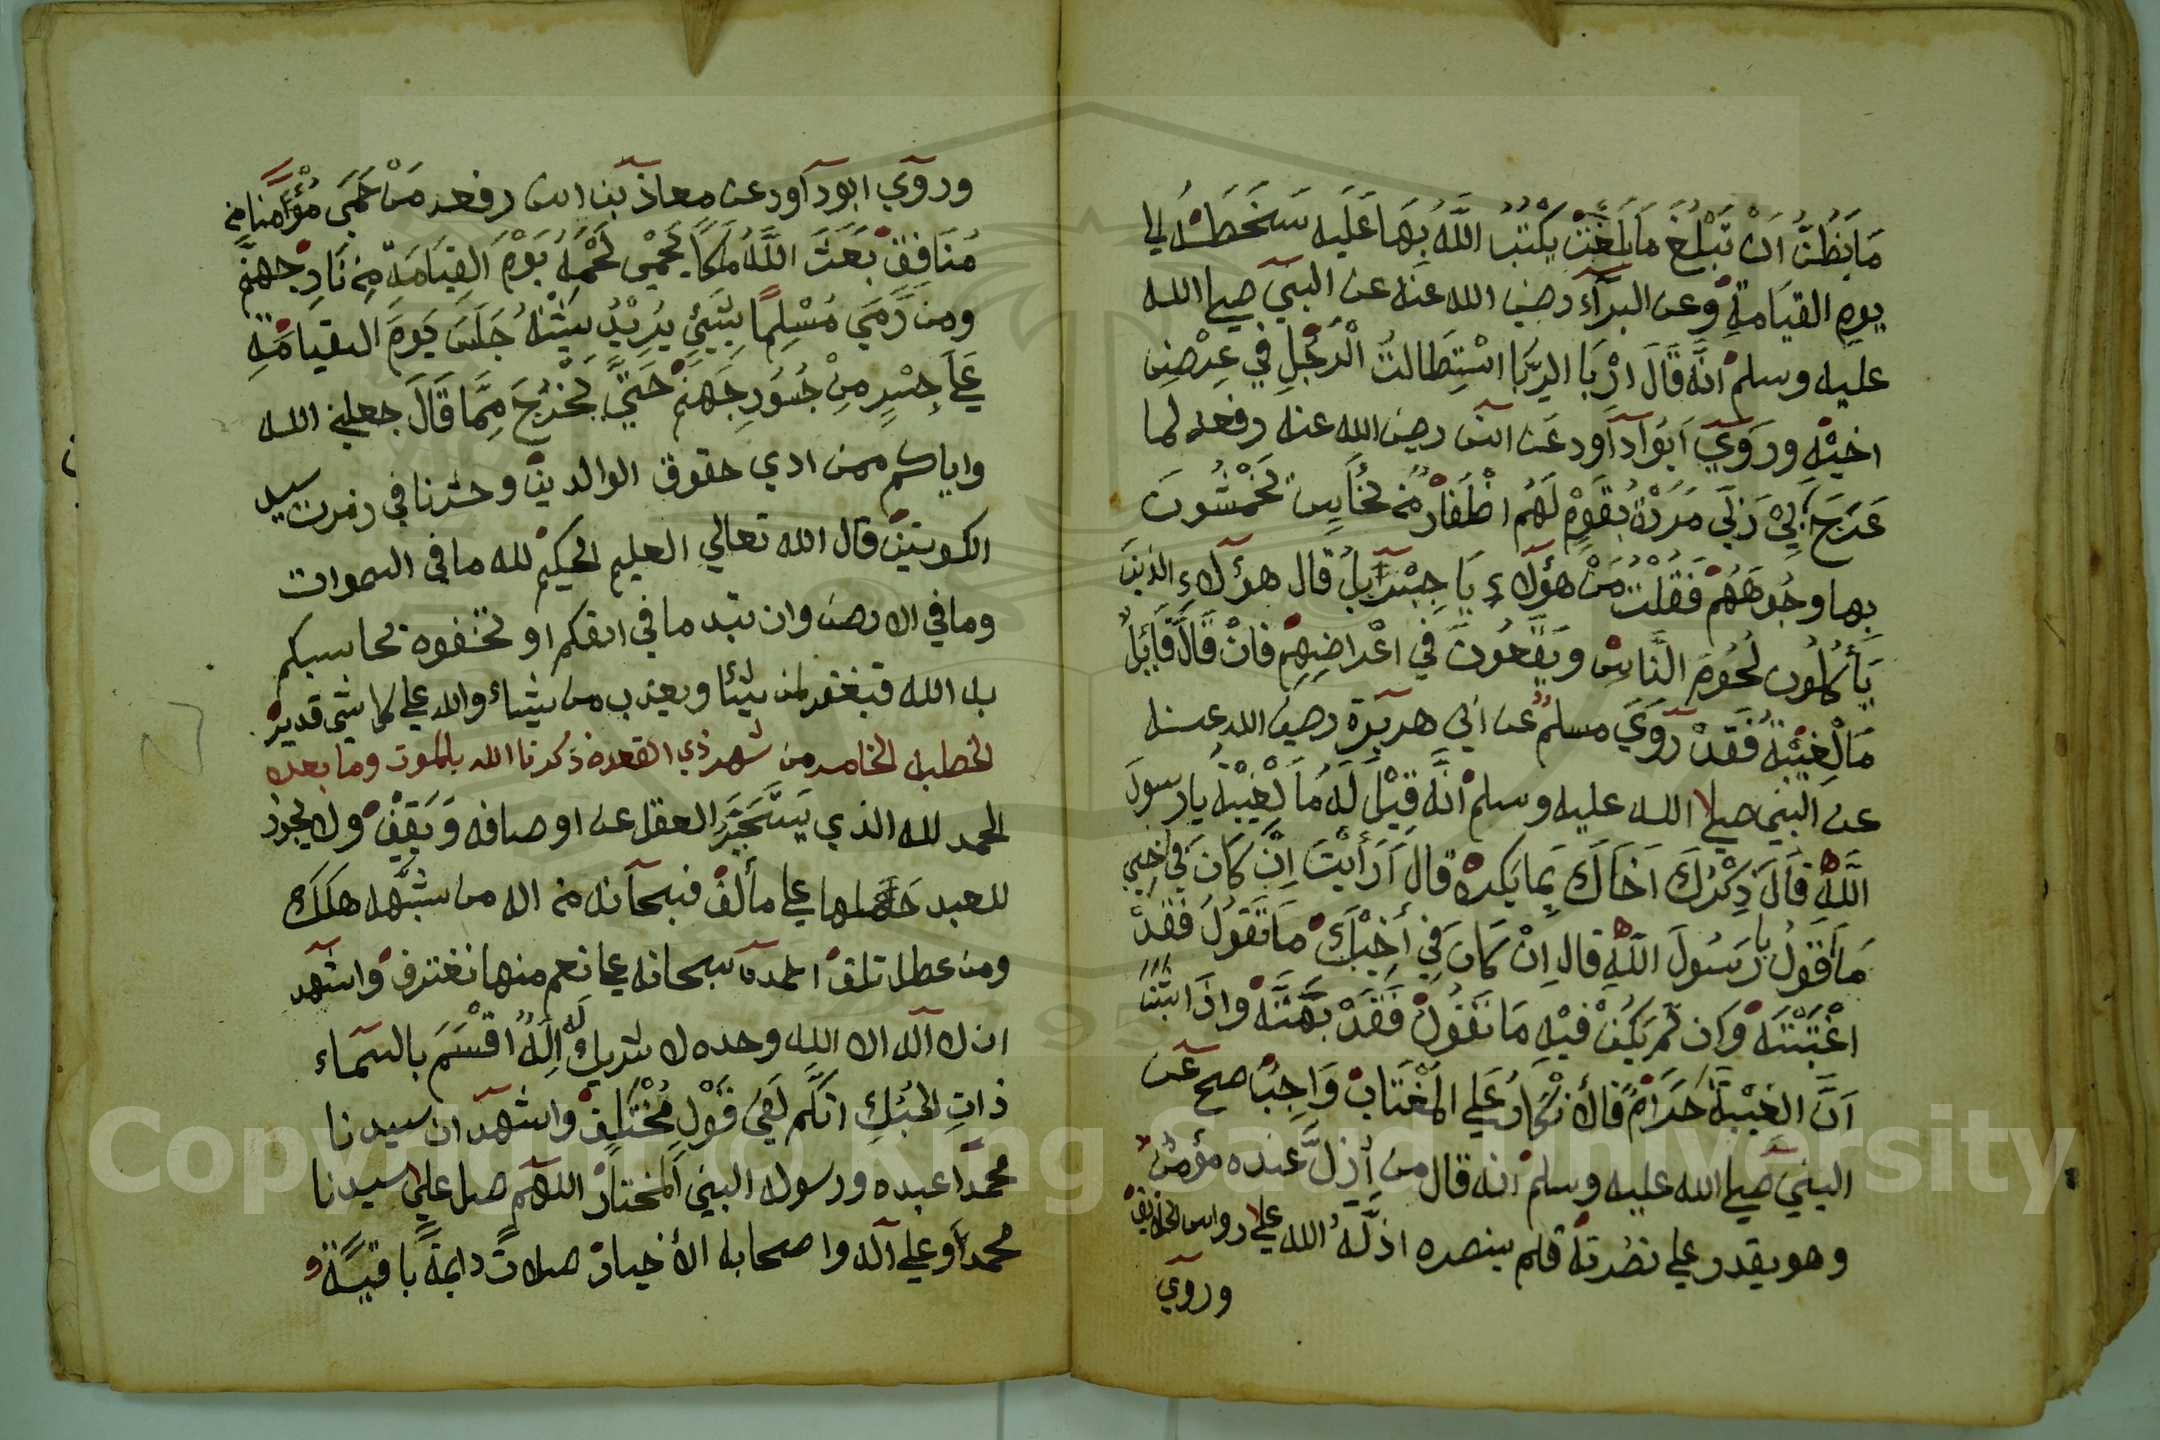 مَا يَظُنُّ اَنْ تَبْلُغَ مَا بَلَغَتْ يَكْتُبُ اللَّهُ بِهَا عَلَيهِ سَخَطَهُ الي
يومِ القيَامَةِ وعن البرآء رضى الله عنه عن النبي صلى الله
عليه وسلم انَّه قَالَ ارْبَا الرِّبَا اسْتِطَالتُ الْرَجُلِ في عِرْضِ
اخيْهِ وروَيَ ابُوا دآاود عَن انس رضى الله عنه رفعه لما
عَرَجَ بِيْ رَبّي مَرَرْتُ بقَومٍ لَهُم اظْفَارٌ مِّن نُحَاسٍ يَخْمشُونَ
بها وجُوهَهُمْ فَقُلْتُ مَنْ هؤلاء يَا جِبْرآيلُ قال هؤلاءِ الذينَ
يَأكُلُون لُحُومَ النَّاسِ ويَقَعُونَ في اعْراضِهِمْ فانْ قَالَ قَايِلٌ
مَا لْغِيْبَةُ فَقَدْ روَيَ مسلم عن ابي هريرة رضى الله عنه
عن النبي صلى الله عليه وسلم انَّه قِيْلَ لَهُ مَا لْغِيْبَةُ يا رسولَ
اللَّه قالَ ذِكْرُكَ اَخَاكَ بِمَا يَكره قال اَرَأيْتَ اِنْ كَانَ في اخي
مَا اَقُولُ يا رَسُولَ اللَّهِ قال اِنْ كَانَ فِي أخِيْكَ مَا تَقُولُ فَقَدْ
اغْتَبْتَهُ وَان لَّمْ يَكُنْ فيْهِ مَا تَقُولُ فَقَدْ بَهَتَّهُ واذَا تبيّن
اَنَّ الغيْبَةَ حَرَامٌ فالأنْكَارُ عَلي المُغْتَابْ وَاجِبٌ صح عَن
النبيّ صلى الله عليه وسلم انه قال من أذِلَّ عنده مؤمنٌ
وهو يقدر علي نصْرتهُ فلم ينصره اذلَّهُ الله علي رواس الخلايق
وروي
وروَي ابو دآود عن معاذ بن انس رفعه مَنْ حَمَي مُؤْمِنًا من
مُنَافِقٍ بَعَثَ اللَّهُ مَلَكًا يَحْمِي لَحْمَهُ يَوْمَ القيَامَةِ مِن نَارِ جهنم
ومن رَّمَي مُسْلِمًا بِشَيْئٍ يُرِيْدُ شَيْنَهُ حَبَسَ يَومَ القيَامَةِ
عَلَي جِسْرٍ مِنْ جُسُورِ جَهنَّم حَتَّي يَخْرُجَ مِمَّا قَالَ جعلني الله
واياكم ممن ادي حقوق الوالدين وحشرنا في زمرت سيد
الكونين قال الله تعالي العليم الحكيم لله ما في السموات
وما في الارض وان تبد ما في انفسكم او تخفوه يحاسبكم
به الله فيغفر لمن يشا ويعذب من يشاء والله علي كل شي قدير
الخطبه الخامسه من شهر ذي القعده ذكرنا الله بالموت وما بعده
الحمد لله الذي يَتَحَيَّرُ العقل عن اوصافه وَيَقِفْ ولا يجوز
للعبد حملها علي مألف فسبحآنه من اله من شبَّهه هلك
ومن عطل تلف احمده سبحانه علي نعم منها نغترف واشهد
ان لا اله الا الله وحده لا شريك لهُ إلَهٌ اقْسَمَ بالسّماء
ذاتِ الحُبُكِ انكُم لَفِي قَوْلٍ مُخْتَلِفْ واشهد ان سيدنا
محمدًا عبده ورسوله النبي المختارْ اللهم صل علي سيدنا
محمد وعلي آله واصحابه الأخيار صلاتً دايمةً باقيَةً